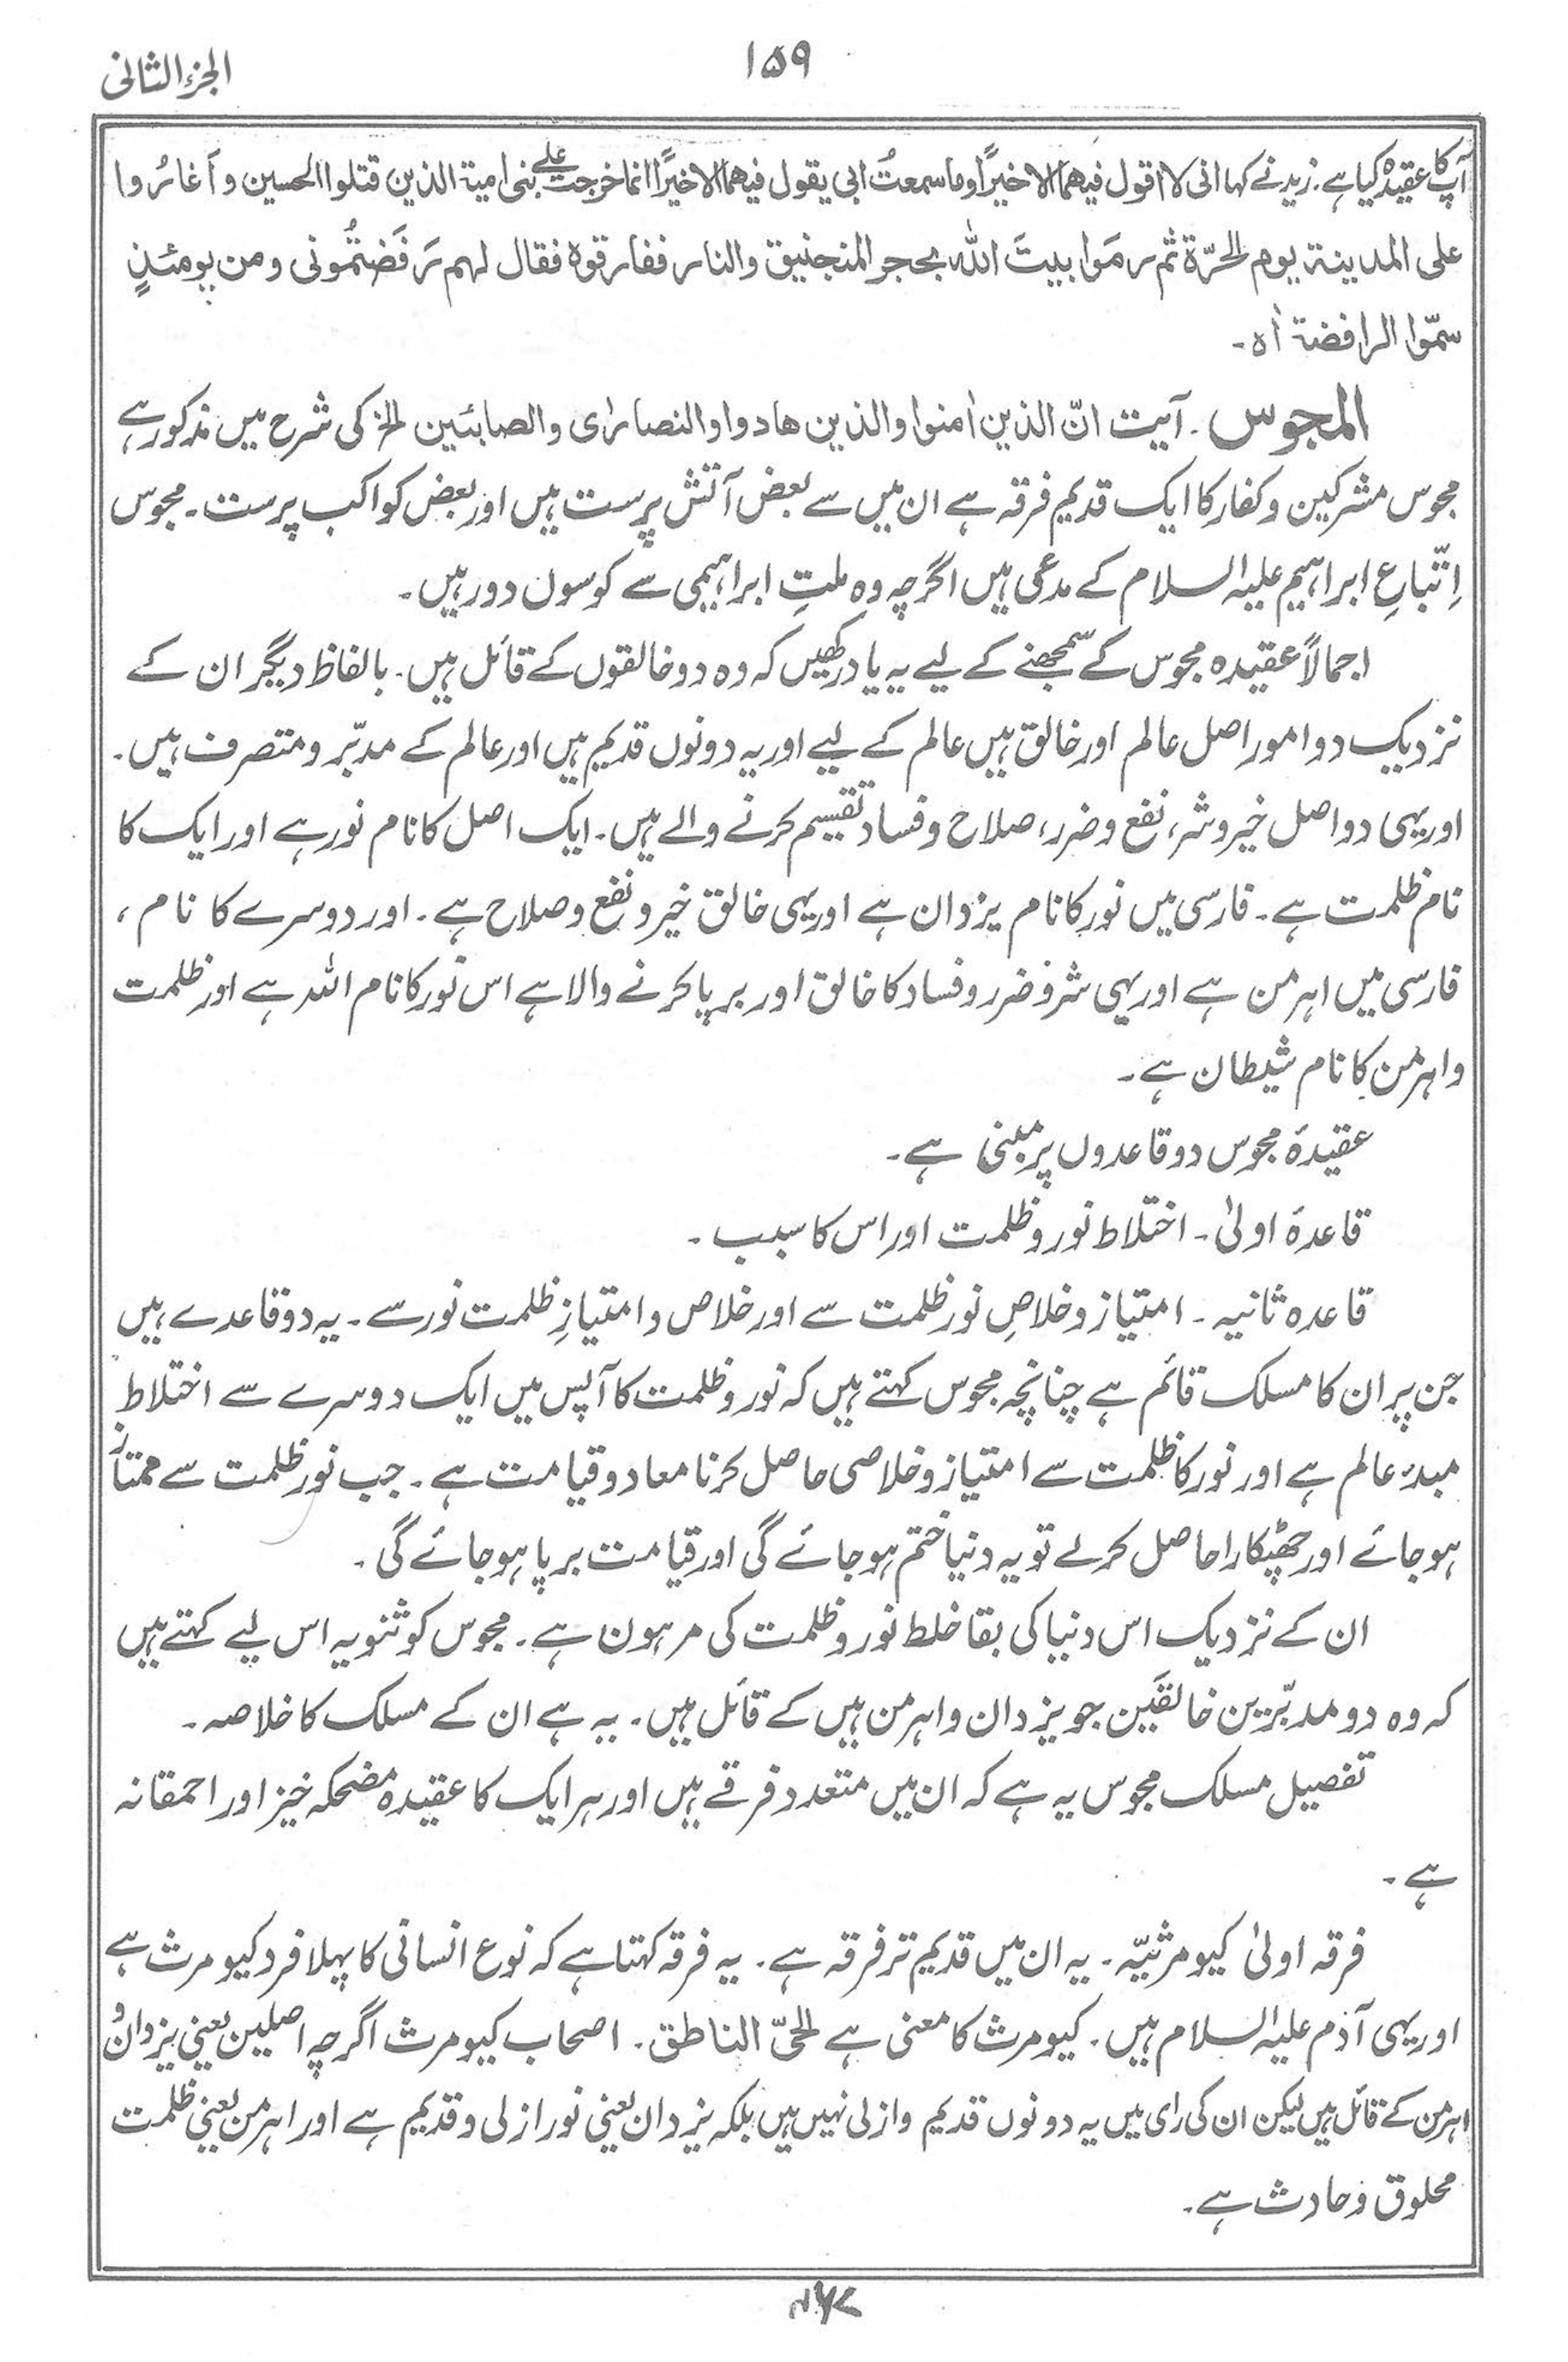 الجزء الثانی
۱۵۹
آپ کا عقیدہ کیا ہے۔ زید نے کہا انی لا اقول فیهما الا خیرًا و ما سمعتُ ابی یقول فیهما الا خیرًا انما خرجت علی بنی امیة الذین قتلوا الحسین و اَغارُوا
علی المدینة یوم الحرّة ثم رمَوا بیتَ اللّٰہ بحجر المنجنیق والنار ففارقوہ فقال لهم رَفَضتُمُونی و من یومئذٍ
سمّوا الرافضة اٰہ۔
المجوس۔ آیت انّ الذین اٰمنوا والذین هادوا والنصارٰی والصابئین الخ کی شرح میں مذکور ہے
مجوس مشرکین و کفار کا ایک قدیم فرقہ ہے ان میں سے بعض آتش پرست ہیں اور بعض کواکب پرست۔ مجوس
اِتّباعِ ابراہیم علیہ السلام کے مدعی ہیں اگرچہ وہ ملتِ ابراہیمی سے کوسوں دور ہیں۔
اجمالاً عقیدہ مجوس کے سمجھنے کے لیے یہ یاد رکھیں کہ وہ دو خالقوں کے قائل ہیں۔ بالفاظ دیگر ان کے
نزدیک دو امور اصل عالم اور خالق ہیں عالم کے لیے اور یہ دونوں قدیم ہیں اور عالم کے مدبّر و متصرف ہیں۔
اور یہی دو اصل خیر و شر، نفع و ضرر، صلاح و فساد تقسیم کرنے والے ہیں۔ ایک اصل کا نام نور ہے اور ایک کا
نام ظلمت ہے۔ فارسی میں نور کا نام یزدان ہے اور یہی خالق خیر و نفع و صلاح ہے۔ اور دوسرے کا نام ،
فارسی میں اہرمن ہے اور یہی شر و ضرر و فساد کا خالق اور برپا کرنے والا ہے اس نور کا نام اللہ ہے اور ظلمت
و اہرمن کا نام شیطان ہے۔
عقیدۂ مجوس دو قاعدوں پر مبنی ہے۔
قاعدۂ اولیٰ۔ اختلاط نور و ظلمت اور اس کا سبب۔
قاعدہ ثانیہ۔ امتیاز و خلاصِ نور ظلمت سے اور خلاص و امتیازِ ظلمت نور سے۔ یہ دو قاعدے ہیں
جن پر ان کا مسلک قائم ہے چنانچہ مجوس کہتے ہیں کہ نور و ظلمت کا آپس میں ایک دوسرے سے اختلاط
مبدءِ عالم ہے اور نور کا ظلمت سے امتیاز و خلاصی حاصل کرنا معاد و قیامت ہے۔ جب نور ظلمت سے ممتاز
ہو جائے اور چھٹکارا حاصل کر لے تو یہ دنیا ختم ہو جائے گی اور قیامت برپا ہو جائے گی۔
ان کے نزدیک اس دنیا کی بقا خلط نور و ظلمت کی مرہون ہے۔ مجوس کو ثنویہ اس لیے کہتے ہیں
کہ وہ دو مدبّرین خالقَین جو یزدان و اہرمن ہیں کے قائل ہیں۔ یہ ہے ان کے مسلک کا خلاصہ۔
تفصیل مسلک مجوس یہ ہے کہ ان میں متعدد فرقے ہیں اور ہر ایک کا عقیدہ مضحکہ خیز اور احمقانہ
ہے۔
فرقہ اولیٰ کیومرثیّہ۔ یہ ان میں قدیم تر فرقہ ہے۔ یہ فرقہ کہتا ہے کہ نوع انسانی کا پہلا فرد کیومرث ہے
اور یہی آدم علیہ السلام ہیں۔ کیومرث کا معنی ہے الحیّ الناطق۔ اصحاب کیومرث اگرچہ اصلین یعنی یزدان و
اہرمن کے قائل ہیں لیکن ان کی رای میں یہ دونوں قدیم و ازلی نہیں ہیں بلکہ یزدان یعنی نور ازلی و قدیم ہے اور اہرمن یعنی ظلمت
مخلوق و حادث ہے۔